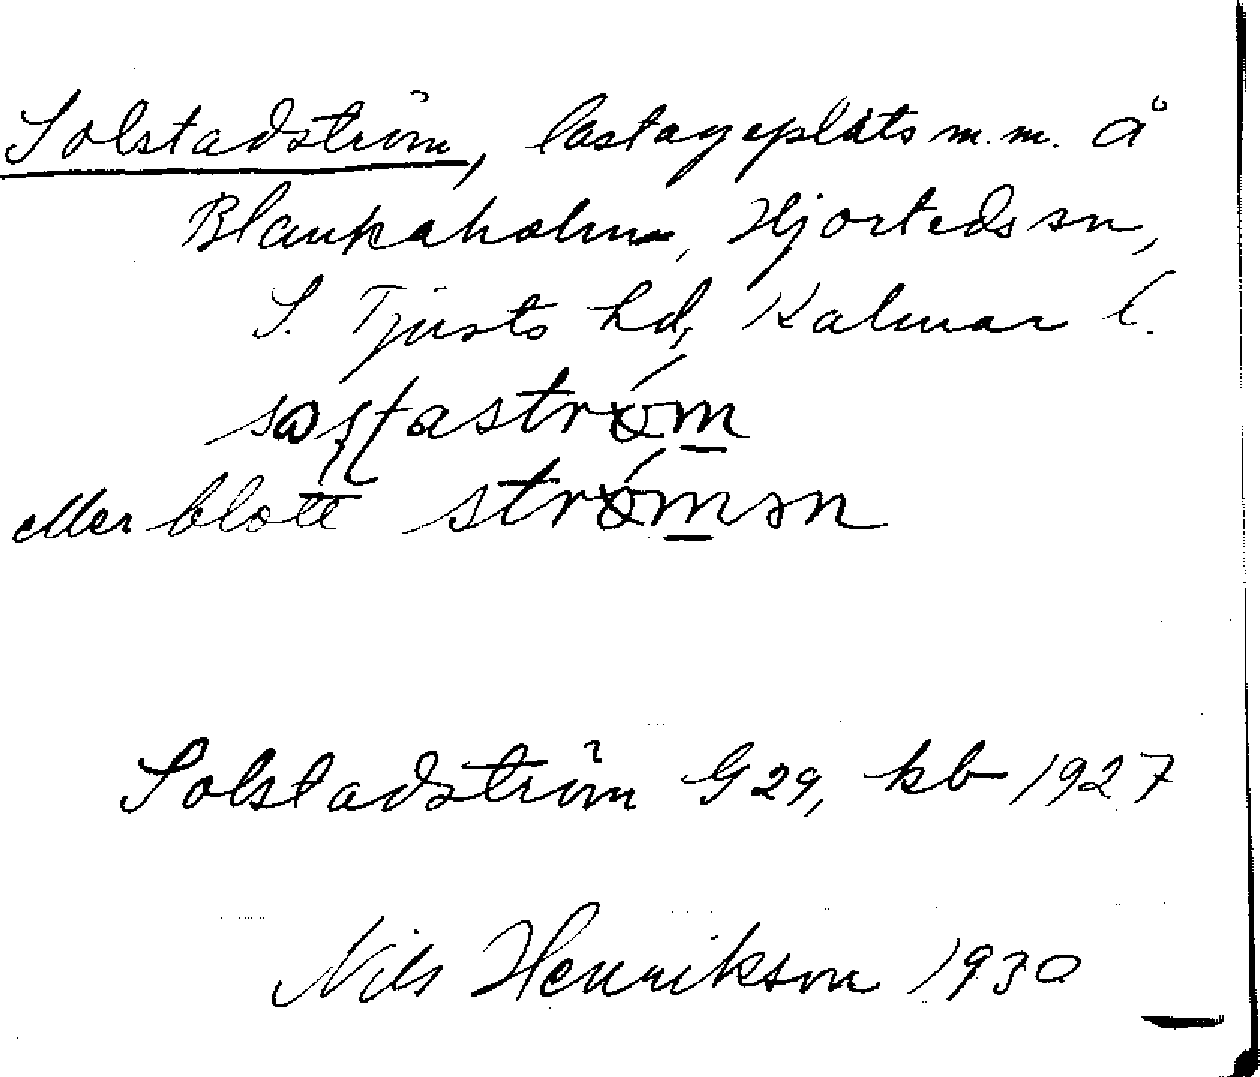 Solstadström, lastageplats m.m. å
Blankaholm, Hjorteds sn,
S. Tjusts hd, Kalmar l.
eller blott strømən
Solstadström G 29, kb 1927
Nils Henrikson 1930